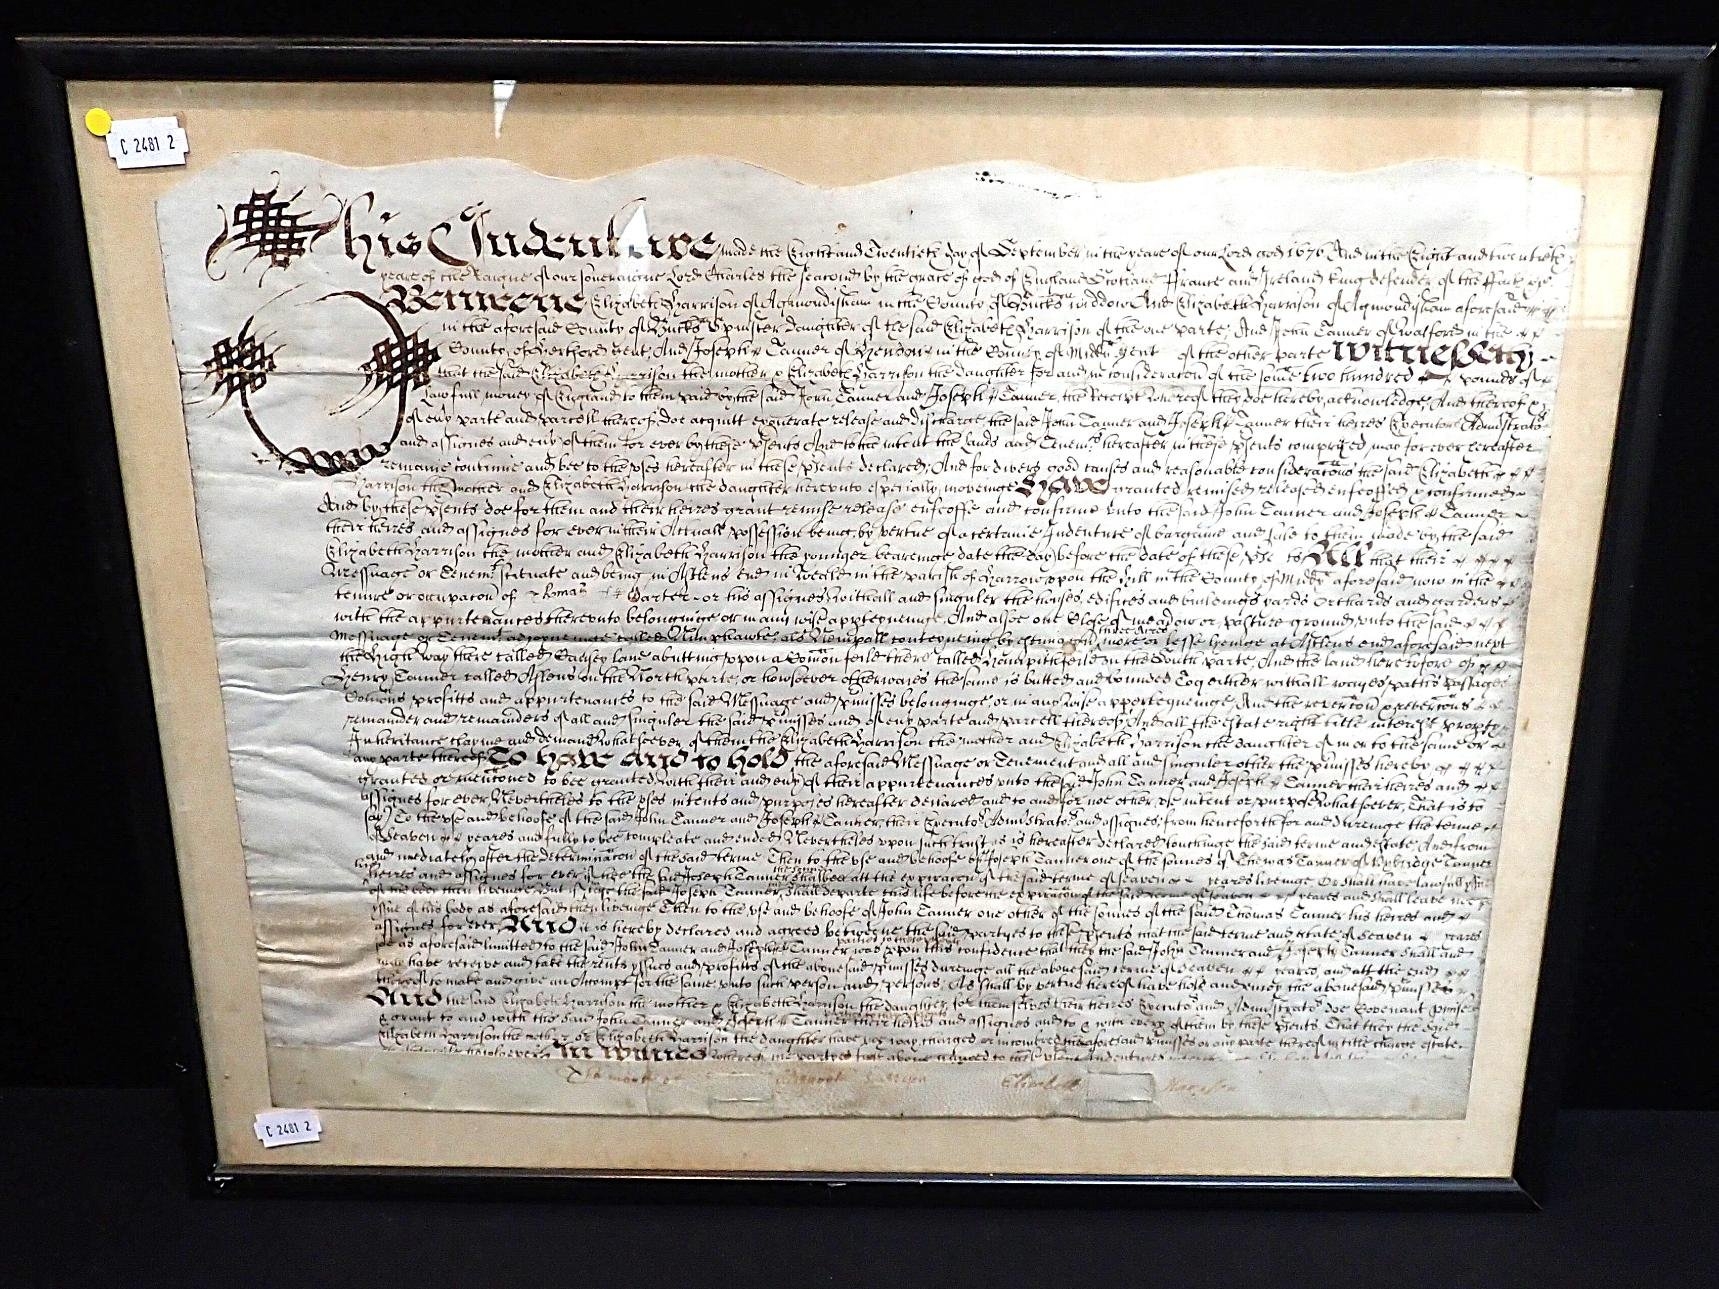 C 2481 2
This Indenture made the Eight and Twentieth day of September in the yeare of our Lord god 1676 And in the Eight and twentieth
yeare of the Raigne of our soveraigne Lord Charles the second by the grace of god of England Scotland France and Ireland King defender of the Faith
Betweene Elizabeth Harrison of Agmondisham in the County of Bucks widdow And Elizabeth Harrison of Agmondisham aforesaid
in the aforesaid County of Bucks Spinster daughter of the said Elizabeth Harrison of the one parte And John Tanner of Watford in the
County of Hertford gent And Joseph Tanner of Hendon in the County of Midd gent of the other parte Witnesseth
that the said Elizabeth Harrison the mother & Elizabeth Harrison the daughter for and in consideracon of the some two hundred pounds of
lawfull money of England to them paid by the said John Tanner and Joseph Tanner, the receipt whereof they doe hereby acknowledge, And thereof &
of evy parte and parcell thereof doe acquitt exonerate release and discharge the said John Tanner and Joseph Tanner their heires Executors Administrators
and assignes and evy of them for ever by these psents And to the intent the lands and Tenemts hereafter in these psents comprized may for ever hereafter
remaine continue and bee to the vses hereafter in these psents declared, And for divers good causes and reasonable consideracons the said Elizabeth
Harrison the mother and Elizabeth Harrison the daughter herevnto especially moveinge Have granted remised released enfeoffed & confirmed
And by these psents doe for them and their heires grant remise release enfeoffe and confirme vnto the said John Tanner and Joseph Tanner
their heires and assignes for ever in their Actuall possession being by vertue of a certaine Indenture of bargaine and sale to them made by the said
Elizabeth Harrison the mother and Elizabeth Harrison the younger beareinge date the day before the date of these psents All that their
Messuage or Tenemt scituate and being in Astlens end in Weald in the parish of Harrow vpon the hill in the County of Midd aforesaid now in the
tenure or occupacon of Carter or his assignes withall and singuler the houses, edifices and buildings yards Orchards and gardens
with the appurtenances therevnto belonginge or in any wise apperteyneinge And alsoe one Close of meadow or pasture ground vnto the said
Messuage or Tenemt adjoyneinge called als conteyneing by estimacon three acres more or lesse lyeinge at Astlens end aforesaid next
the high way there called lane abutting vpon a Comon feild there called in the South parte, And the land heretofore of
Henry Tanner called Astlens on the North parte, or howsoever otherwaies the same is butted and bounded Togeither withall wayes paths passages
Comons profitts and appurtenances to the said Messuage and pmisses belonginge or in any wise apperteyneinge And the revercon & revercons
remainder and remainders of all and singuler the said pmisses and of evy parte and parcell thereof And all the estate right title interest propty
Inheritance clayme and demand whatsoever of them the Elizabeth Harrison the mother and Elizabeth Harrison the daughter of in or to the same or
any parte thereof To have and to hold the aforesaid Messuage or Tenement and all and singuler other the pmisses hereby
granted or mencioned to bee granted with their and evy of their appurtenances vnto the said John Tanner and Joseph Tanner their heires and
assignes for ever Nevertheles to the vses intents and purposes hereafter declared and to and for noe other vse intent or purpose whatsoever, That is to
say To the vse and behoofe of the said John Tanner and Joseph Tanner, their Executors Administrators and assignes from henceforth for and dureinge the terme
of Seaven yeares and fully to bee compleate and ended Nevertheles vpon such trust as is hereafter declared touchinge the said terme and estate And from
and imediately after the determinacon of the said terme Then to the vse and behoofe of Joseph Tanner one of the sonnes of Thomas Tanner of Vxbridge Tanner
his heires and assignes for ever if the said Joseph Tanner the sonne shalbee att the expiracon of the said terme of seaven yeares liveinge Or shall have lawfull yssue
of his body then liveinge But if the said Joseph Tanner shall departe this life before the expiracon of the said terme of seaven yeares and shall leave noe
yssue of his body as aforesaid then liveinge Then to the vse and behoofe of John Tanner one other of the sonnes of the said Thomas Tanner his heires and
assignes for ever And it is hereby declared and agreed betweene the said partyes to these psents that the said terme and estate of Seaven yeares
soe as aforesaid limitted to the said John Tanner and Joseph Tanner was vpon this confidence that they the said John Tanner and Joseph Tanner shall and
may have receive and take the rents yssues and profitts of the abovesaid pmisses dureinge all the abovesaid terme of Seaven yeares, and att the end
thereof to make and give an Accompt for the same vnto such person and persons, As shall by vertue hereof have hold and enjoy the abovesaid pmisses
And the said Elizabeth Harrison the mother & Elizabeth Harrison the daughter, for themselves their heires Executors and Administrators doe Covenant pmise
& grant to and with the said John Tanner and Joseph Tanner their heires and assignes and to & with every of them by these psents, That they the said
Elizabeth Harrison the mother or Elizabeth Harrison the daughter have any way charged or incombred the aforesaid pmisses or any parte thereof in title charge estate
whatsoever In witnes whereof the partyes first above named to these psent Indentures
The marke of Elizabeth Harrison Elizabeth Harrison
C 2481 2